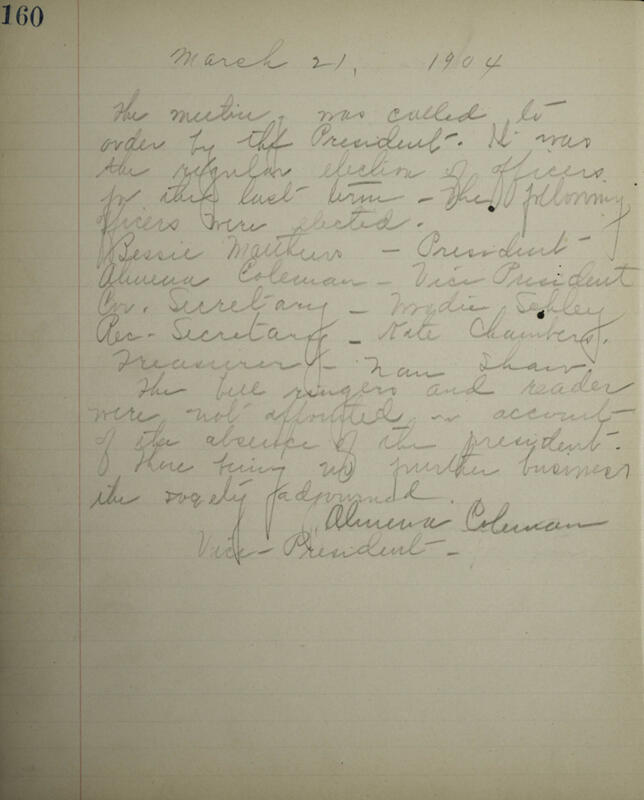 160
March 21, 1904
The meeting was called to
order by the President. It was
the regular election of officers
for the last term - The following
officers were elected.
Bessie Matthews - President
Almena Coleman - Vice President
Cor. Secretary - Sebley
Rec - Secretary - Kate Chambers.
Treasurer - Nan Shaw
The bell ringers and reader
were not appointed on account
of the absence of the president.
There being no further business
the society adjourned.
Almena Coleman
Vice - President -